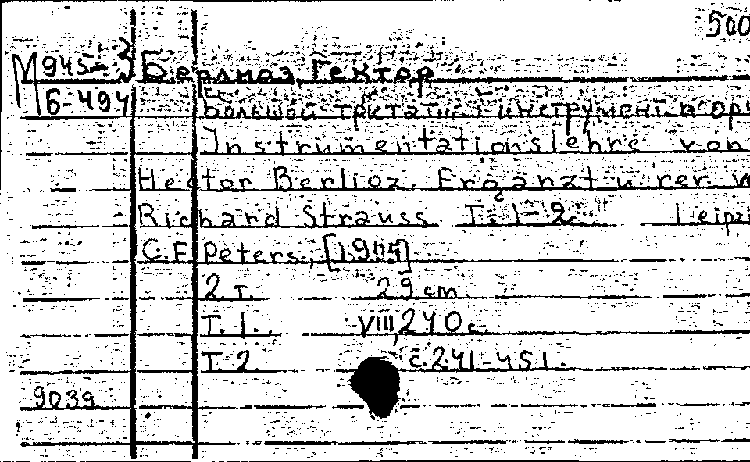 500
М 945-3 Берлиоз, Гектор
6-494 Большой трктатъ инструмент. и ор
Instrumentationslehre von
Hector Berlioz. Ergänzt u. rev. v
Richard Strauss T. 1-2. Leipz
C.F. Peters, [1905]
2 т. 29 cm.
Т. 1. VIII, 240 с.
Т. 2. с. 241-451.
9039